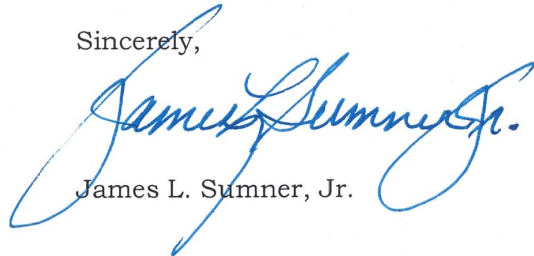 Sincerely,
James L. Sumner, Jr.
James L. Sumner, Jr.